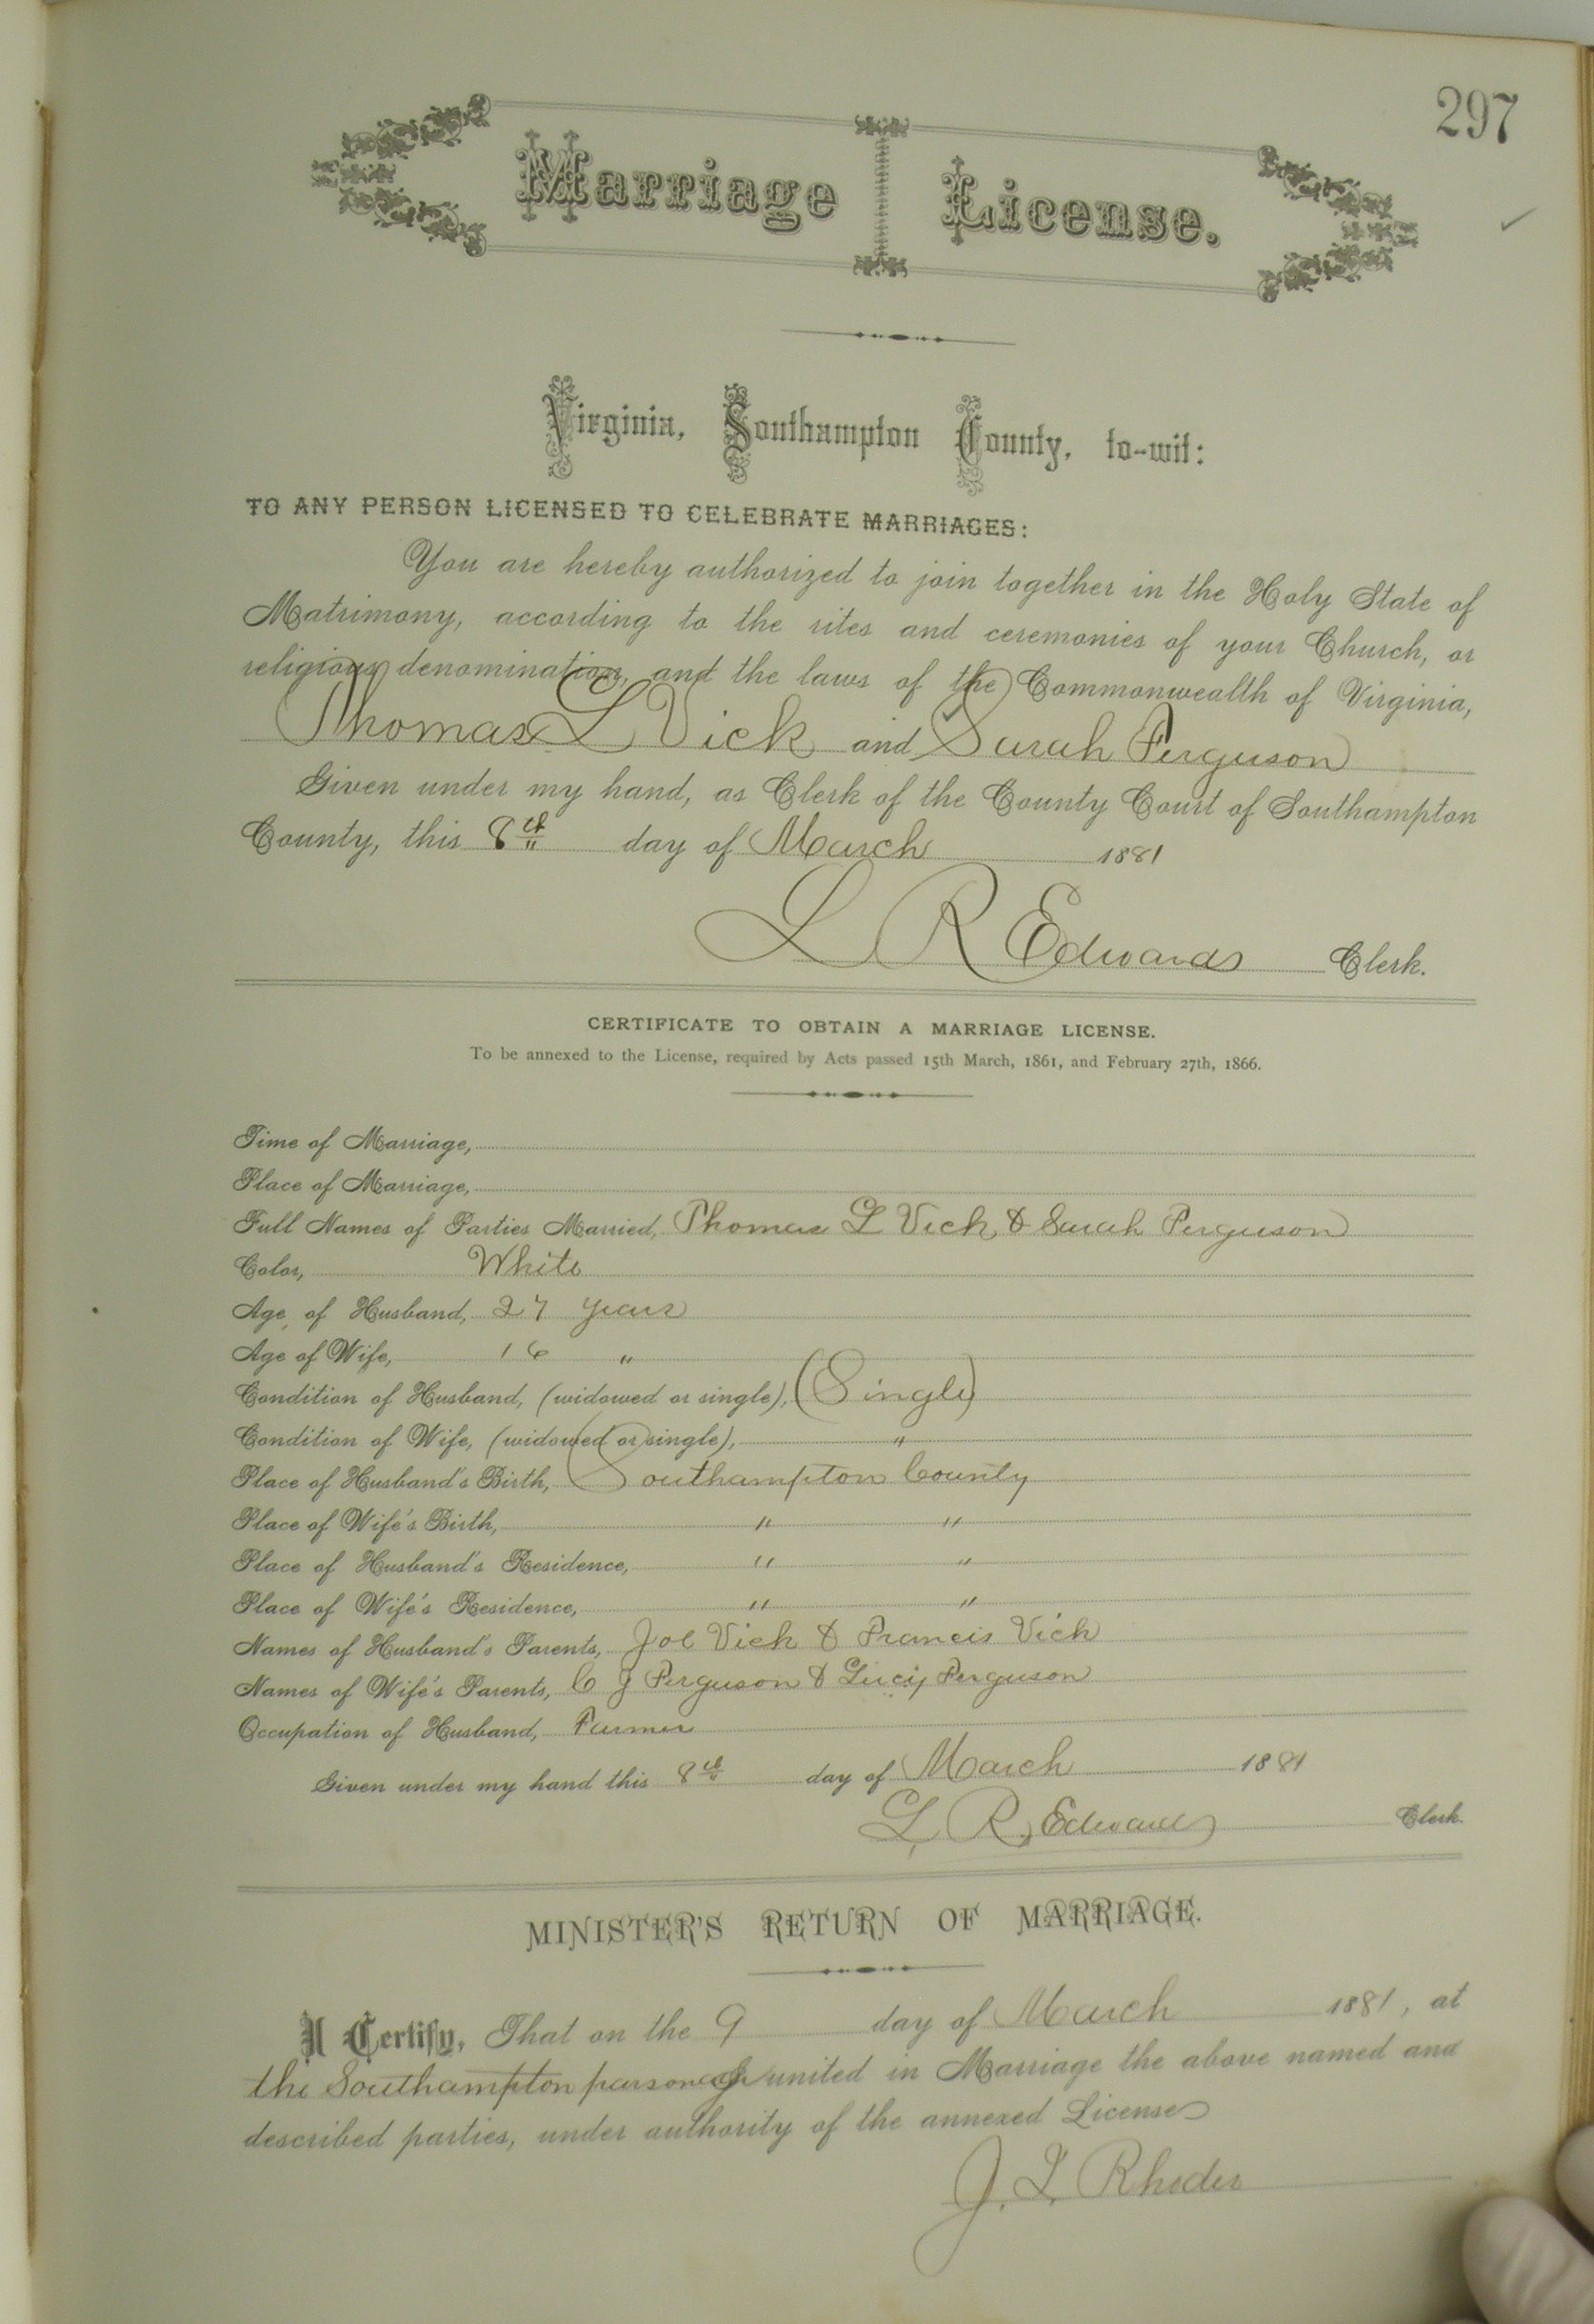 297
Marriage License.
Virginia, Southampton County, to-wit:
TO ANY PERSON LICENSED TO CELEBRATE MARRIAGES:
You are hereby authorized to join together in the Holy State of
Matrimony, according to the rites and ceremonies of your Church, or
religious denomination, and the laws of the Commonwealth of Virginia,
Thomas L Vick and Sarah Ferguson
Given under my hand, as Clerk of the County Court of Southampton
County, this 8th day of March 1881
L R Edwards Clerk.
CERTIFICATE TO OBTAIN A MARRIAGE LICENSE.
To be annexed to the License, required by Acts passed 15th March, 1861, and February 27th, 1866.
Time of Marriage,
Place of Marriage,
Full Names of Parties Married, Thomas L Vick & Sarah Ferguson
Color, White
Age of Husband, 27 years
Age of Wife, 16 "
Condition of Husband, (widowed or single), (Single)
Condition of Wife, (widowed or single), "
Place of Husband's Birth, Southampton County
Place of Wife's Birth, " "
Place of Husband's Residence, " "
Place of Wife's Residence, " "
Names of Husband's Parents, Joe Vick & Francis Vick
Names of Wife's Parents, C J Ferguson & Lucy Ferguson
Occupation of Husband, Farmer
Given under my hand this 8th day of March 1881
L. R. Edwards Clerk.
MINISTER'S RETURN OF MARRIAGE.
I Certify, That on the 9 day of March 1881, at
the Southampton parsonage united in Marriage the above named and
described parties, under authority of the annexed License
J. L. Rhodes